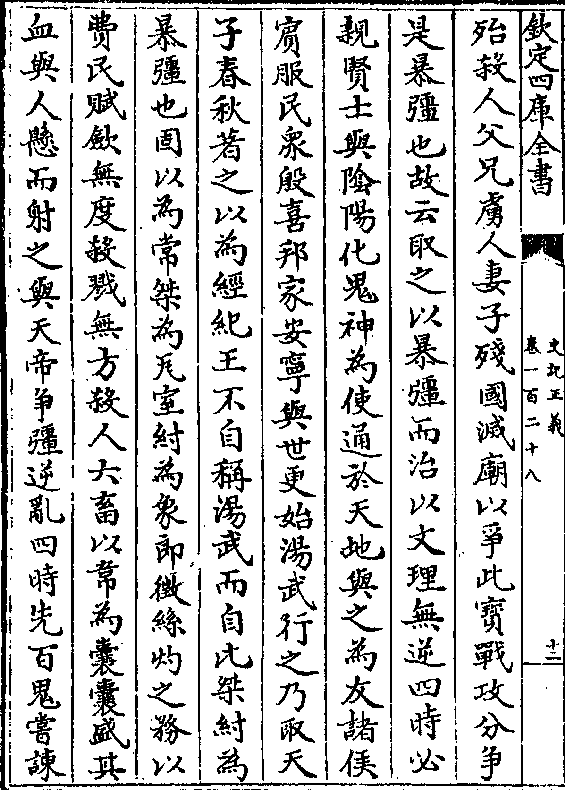 欽定四庫全書
史記正義
卷一百二十八
十一
殆殺人父兄虜人妻子殘國滅廟以爭此寶戰攻分爭
是暴彊也故云取之以暴彊而治以文理無逆四時必
親賢士與陰陽化鬼神為使通於天地與之為友諸侯
賓服民衆殷喜邦家安寧與世更始湯武行之乃取天
子春秋著之以為經紀王不自稱湯武而自比桀紂為
暴彊也固以為常桀為瓦室紂為象郎徵絲灼之務以
費民賦斂無度殺戮無方殺人六畜以韋為囊囊盛其
血與人懸而射之與天帝爭彊逆亂四時先百鬼嘗諫